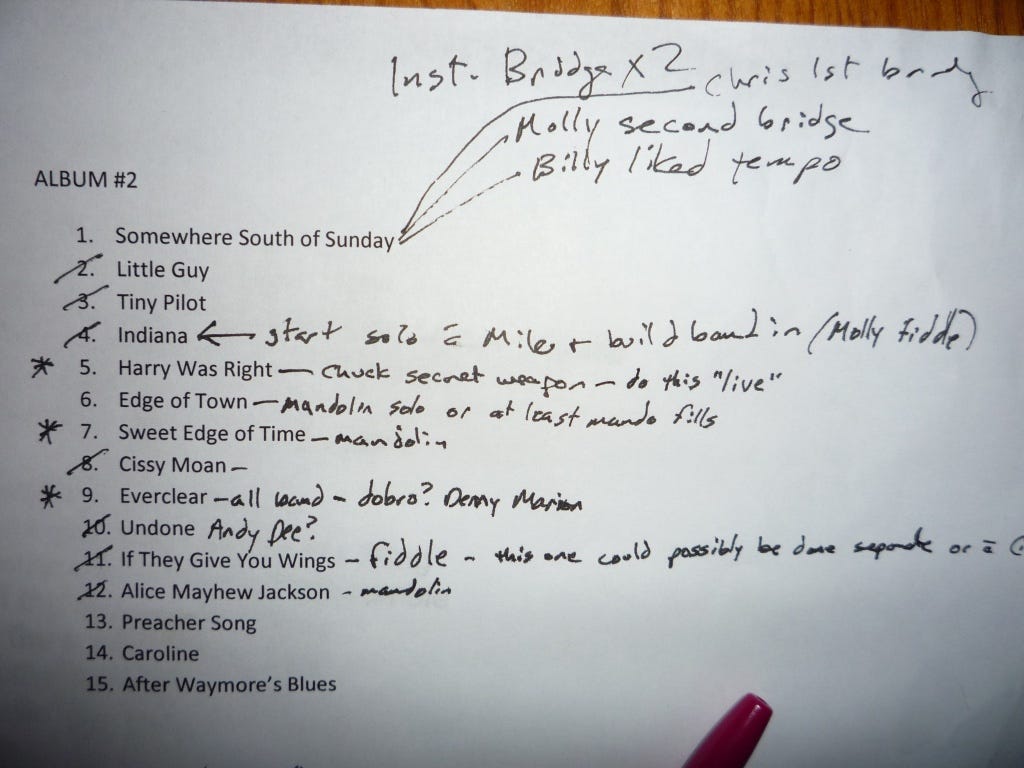 Inst. Bridge x 2 Chris 1st
Molly second bridge
Billy liked tempo
ALBUM #2
1. Somewhere South of Sunday
2. Little Guy
3. Tiny Pilot
4. Indiana ← start solo c̄ Mike + build band in (Molly fiddle)
* 5. Harry Was Right — Chuck secret weapon — do this "live"
6. Edge of Town — mandolin solo or at least mando fills
* 7. Sweet Edge of Time — mandolin
8. Cissy Moan —
* 9. Everclear — all band — dobro? Denny Marion
10. Undone Andy Dee?
11. If They Give You Wings — fiddle — this one could possibly be done separate or c̄
12. Alice Mayhew Jackson - mandolin
13. Preacher Song
14. Caroline
15. After Waymore's Blues